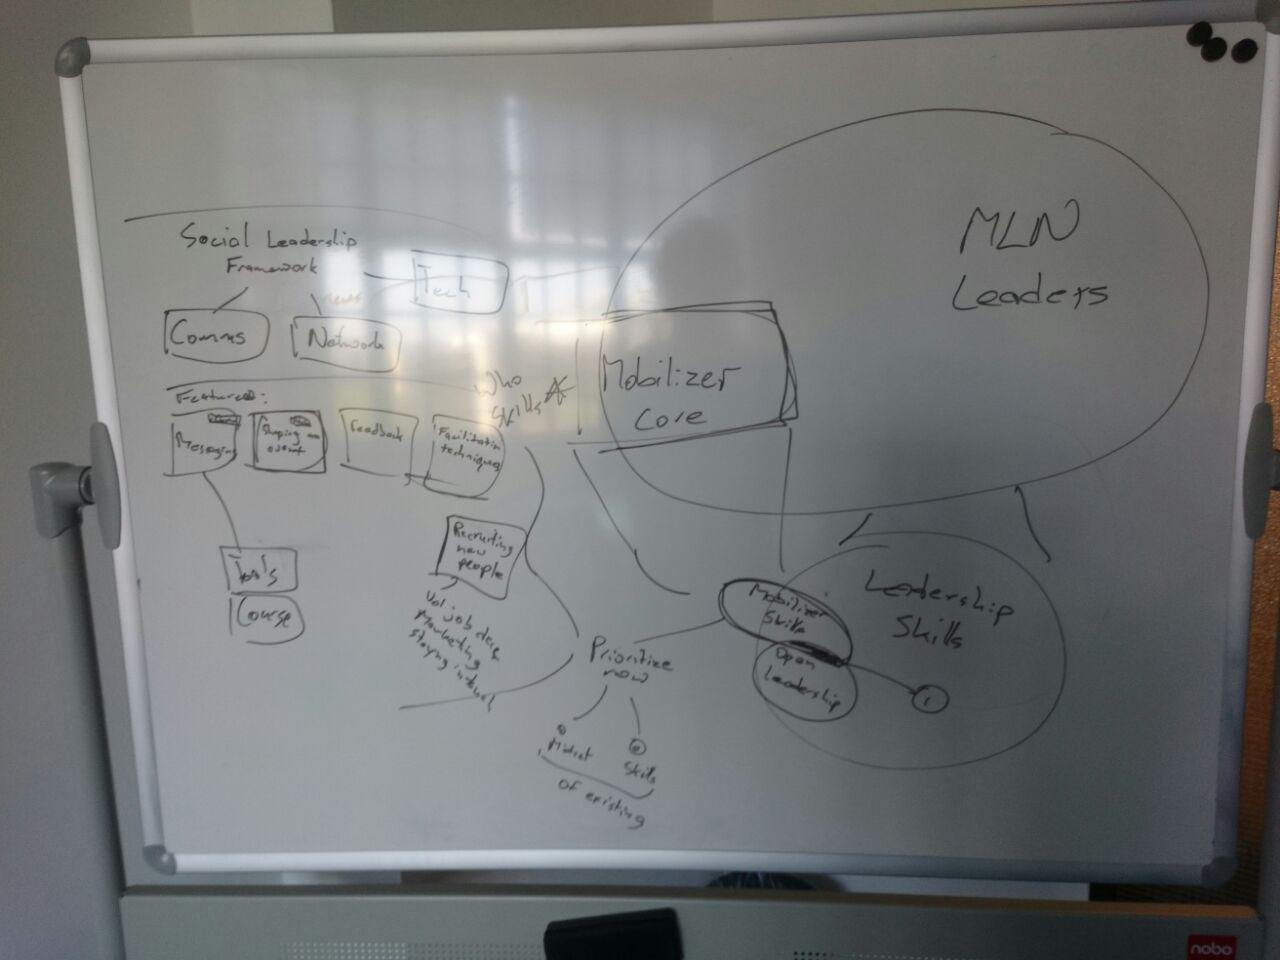 Social Leadership
Framework
Tech
Comms
Network
Featured:
Messaging
Shaping an
event
Feedback
Facilitation
techniques
Who
skills
Tools
Course
Recruiting
new
people
job desc
Marketing
staying in touch
Prioritize
now
Skills
of existing
MLN
Leaders
Mobilizer
Core
Mobilizer
Skills
Open
Leadership
Leadership
Skills
1
nobo